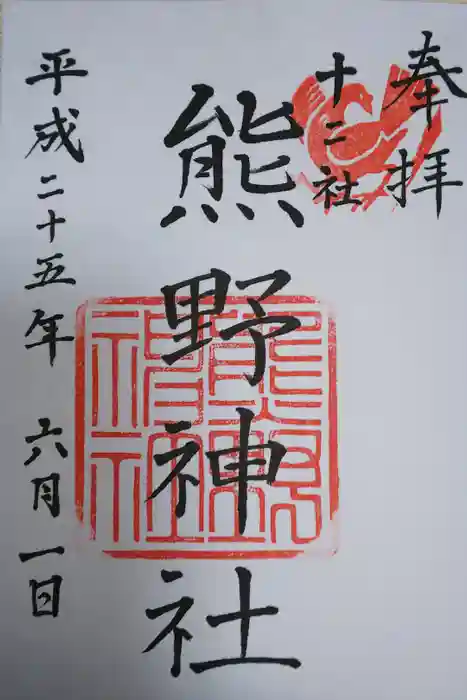 奉拝
十二社
熊野神社
平成二十五年 六月一日
熊野神社